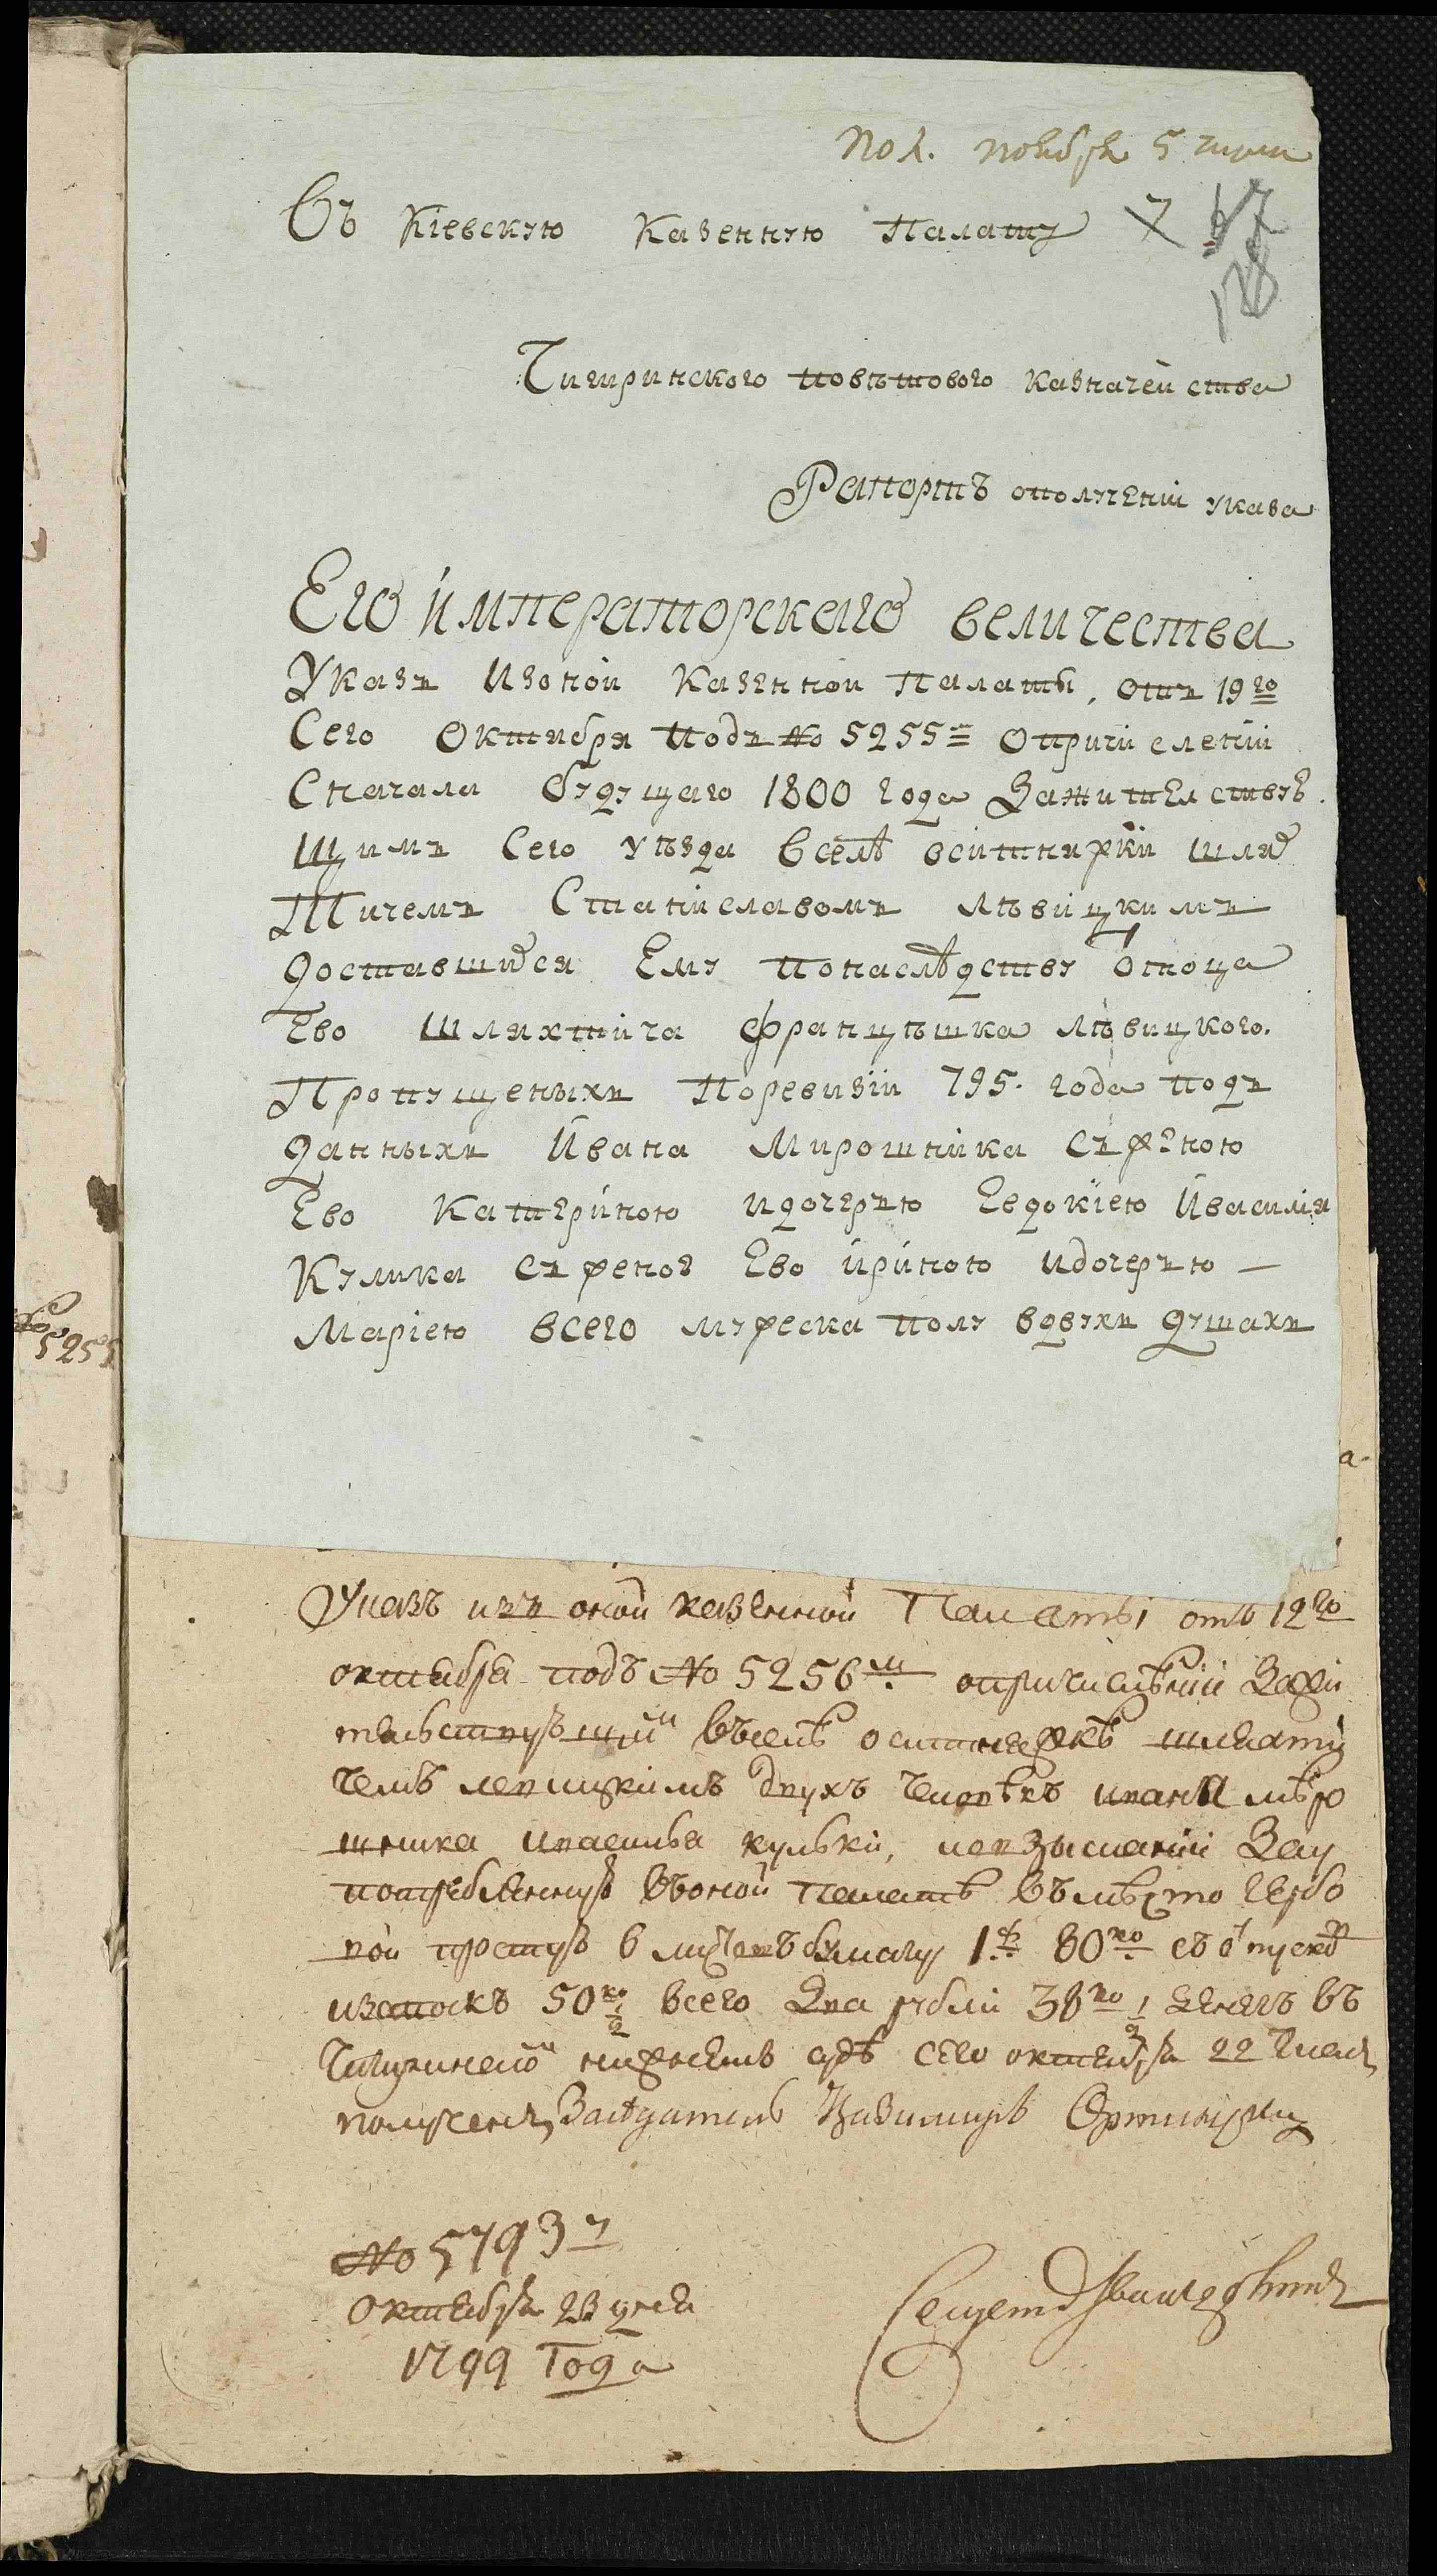 Пол. ноября 5 числа
Въ Кіевскую Казенную Палату 7
Чигиринского повѣтового казначейства
Рапортъ ополученіи указа
Его императорского величества
Указъ Изоной Казенной Палаты, отъ 19го
Сего Октября подъ No 5255м Опричисленіи
Сначала будущаго 1800 года Зажителствую
щимъ Сего уѣзда вселѣ вситнярки шлях
Тичемъ Станіславомъ лѣвицкимъ
доставшихся Ему понаслѣдству отъоца
Ево шляхтича Францѣшка лѣвицкого.
Пропущеныхъ Поревизіи 795. года под
данныхъ Ивана Мирошника Съженою
Ево Катериною идочерью Евдокіею Ивасилія
Кулика Съженою Ево ириною идочерью —
Маріею всего мужеска полу вдвухъ душахъ
No 5255
Указъ изъ оной казенной Палаты отъ 12го
октября подъ No 5256м опричисленіи Зажи
тельствующимъ въселѣ оситняжкѣ шляхти
чемъ левицкимъ двухъ человѣкъ ивана мѣро
шника ивасиля кулѣки, иовзысканіи Зау
потребленную вооной палатѣ въмѣсто гербо
вой простую бумагу 1р 80ко съ пуско
50ко ½ всего два рубли 38ко ½ денегъ въ
Чигиринскомъ нижнемъ судѣ сего октября 22 числа
полученъ, Засѣдатель
No 5793
октября 23 дня
1799 Года